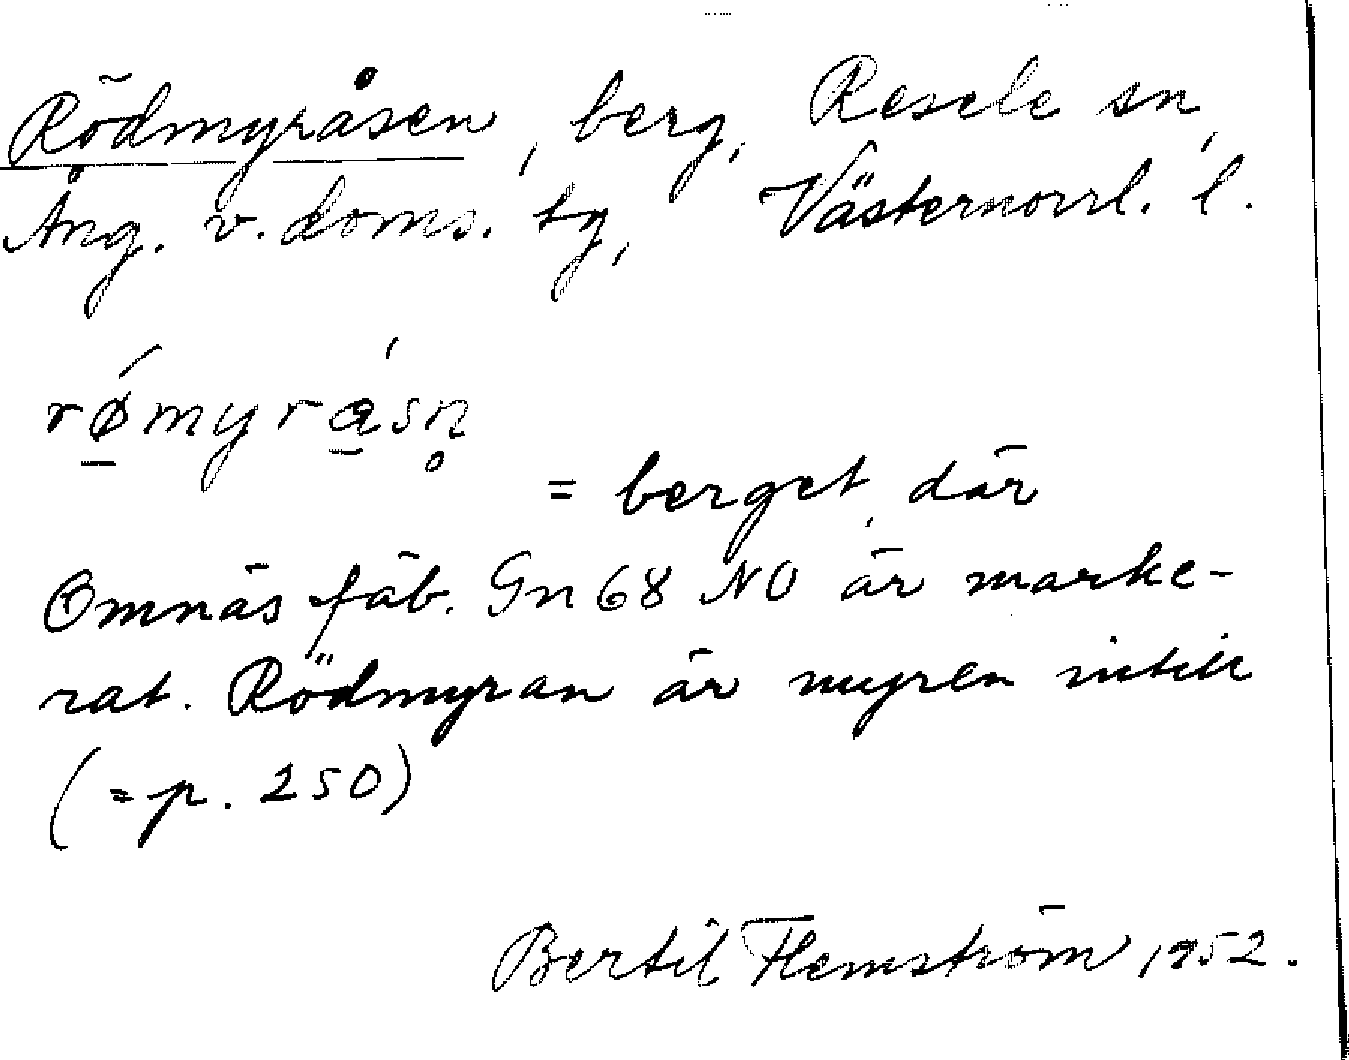 Rödmyråsen, berg, Resele sn,
Ång. v. doms. tg, Västernorrl. l.
rǿ̱myra̱̍sn̥
= berget, där
Omnäs fäb. Gn 68 NO är marke-
rat. Rödmyran är myren intill
(= p. 250)
Bertil Flemström 1952.